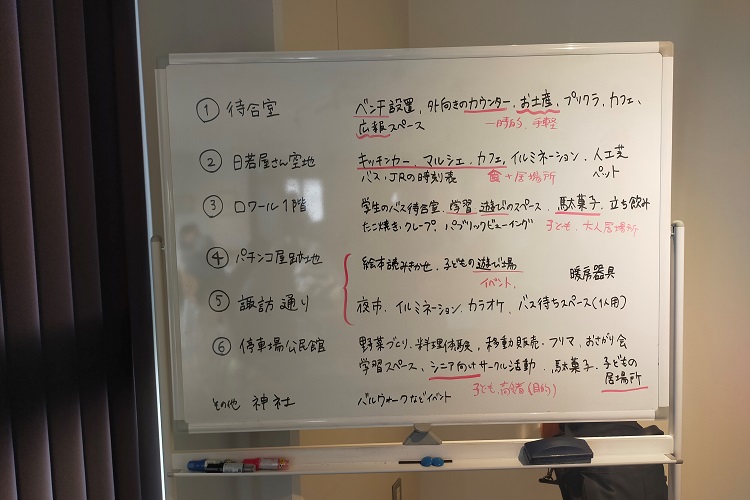 ① 待合室 ベンチ設置、外向きのカウンター、お土産、プリクラ、カフェ、
広報スペース 一時的、手軽
② 日若屋さん空地 キッチンカー、マルシェ、カフェ、イルミネーション、人工芝
バス・JRの時刻表 食+居場所 ペット
③ ロワール1階 学生のバス待合室、学習、遊びのスペース、駄菓子、立ち飲み
たこ焼き・クレープ、パブリックビューイング 子ども、大人居場所
④ パチンコ屋跡地 絵本読みきかせ、子どもの遊び場 暖房器具
イベント、
⑤ 諏訪通り 夜市、イルミネーション、カラオケ、バス待ちスペース(1人用)
⑥ 停車場公民館 野菜づくり、料理体験、移動販売・フリマ、おさがり会
学習スペース、シニア向けサークル活動、駄菓子・子どもの
居場所
子ども、高齢者(目的)
その他 神社 バルウォークなどイベント